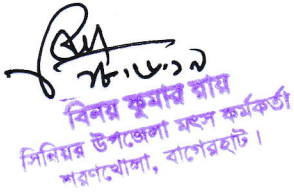 ২৮.৮.১৯
বিনয় কুমার রায়
সিনিয়র উপজেলা মৎস কর্মকর্তা
শরণখোলা, বাগেরহাট।